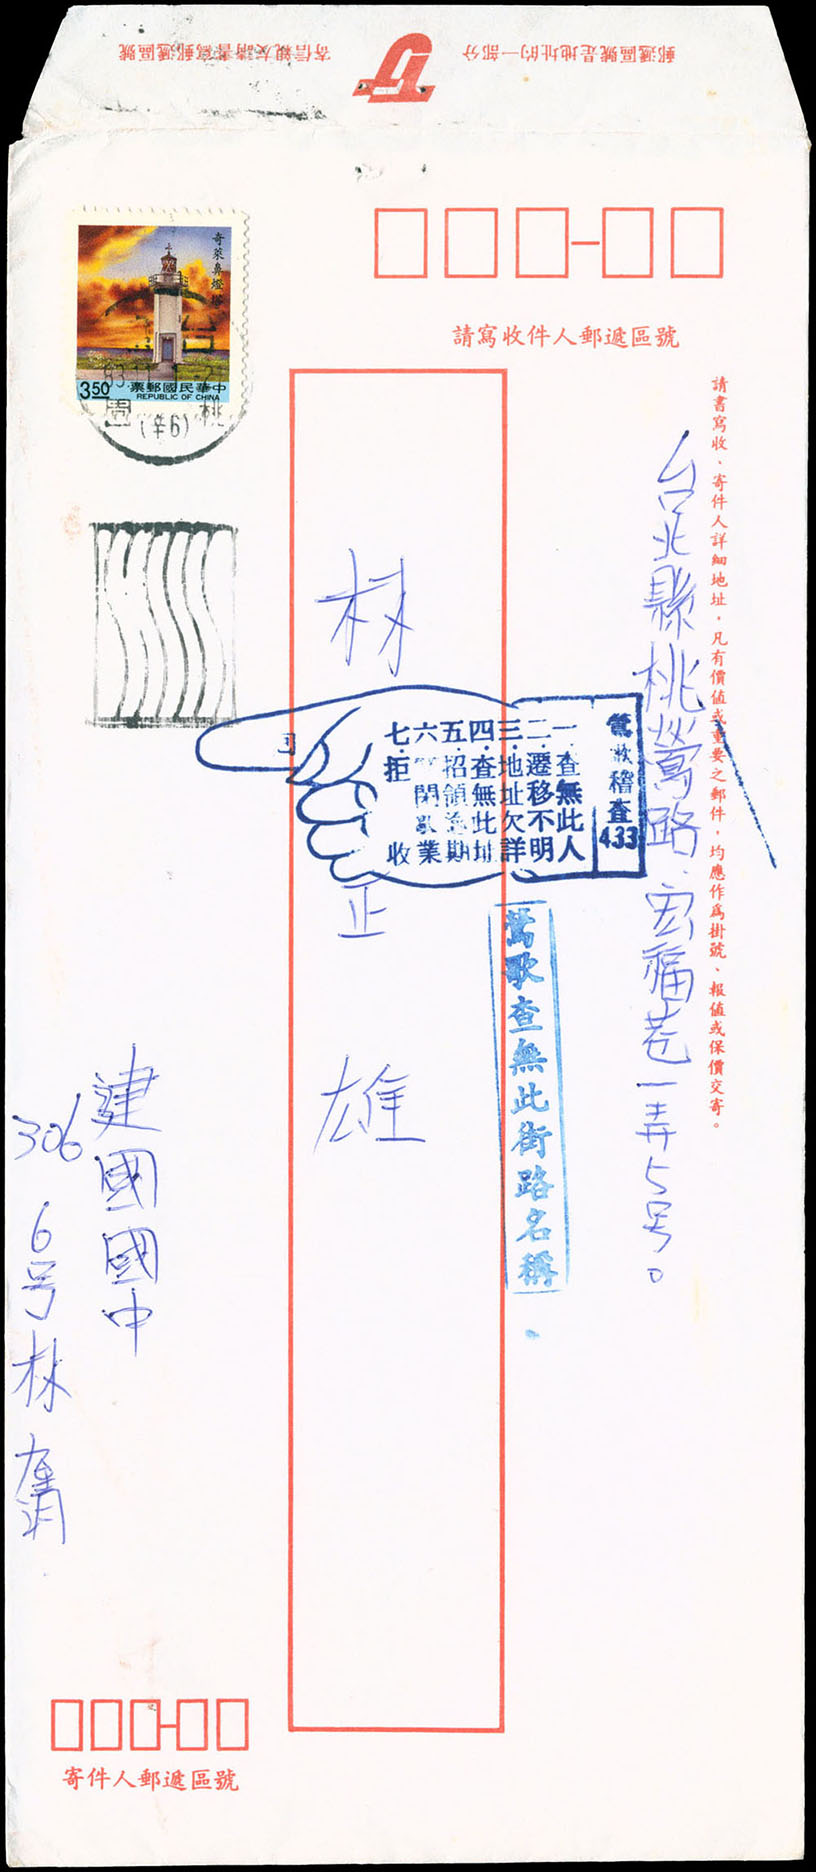 郵遞區號是地址的一部分
寄信親友請書寫郵遞區號
奇萊鼻燈塔
中華民國郵票
REPUBLIC OF CHINA
3.50
83.11
桃園
(辛6)
請寫收件人郵遞區號
請書寫收、寄件人詳細地址，凡有價值或重要之郵件，均應作為掛號、報值或保價交寄。
台北縣桃鶯路宏福巷一弄5号。
林正雄
鶯歌稽查
433
一.查無此人
二.遷移不明
三.地址欠詳
四.查無此址
五.招領逾期
六 閉歇業
七.拒 收
鶯歌查無此街路名稱
建國國中
306
6号林
寄件人郵遞區號